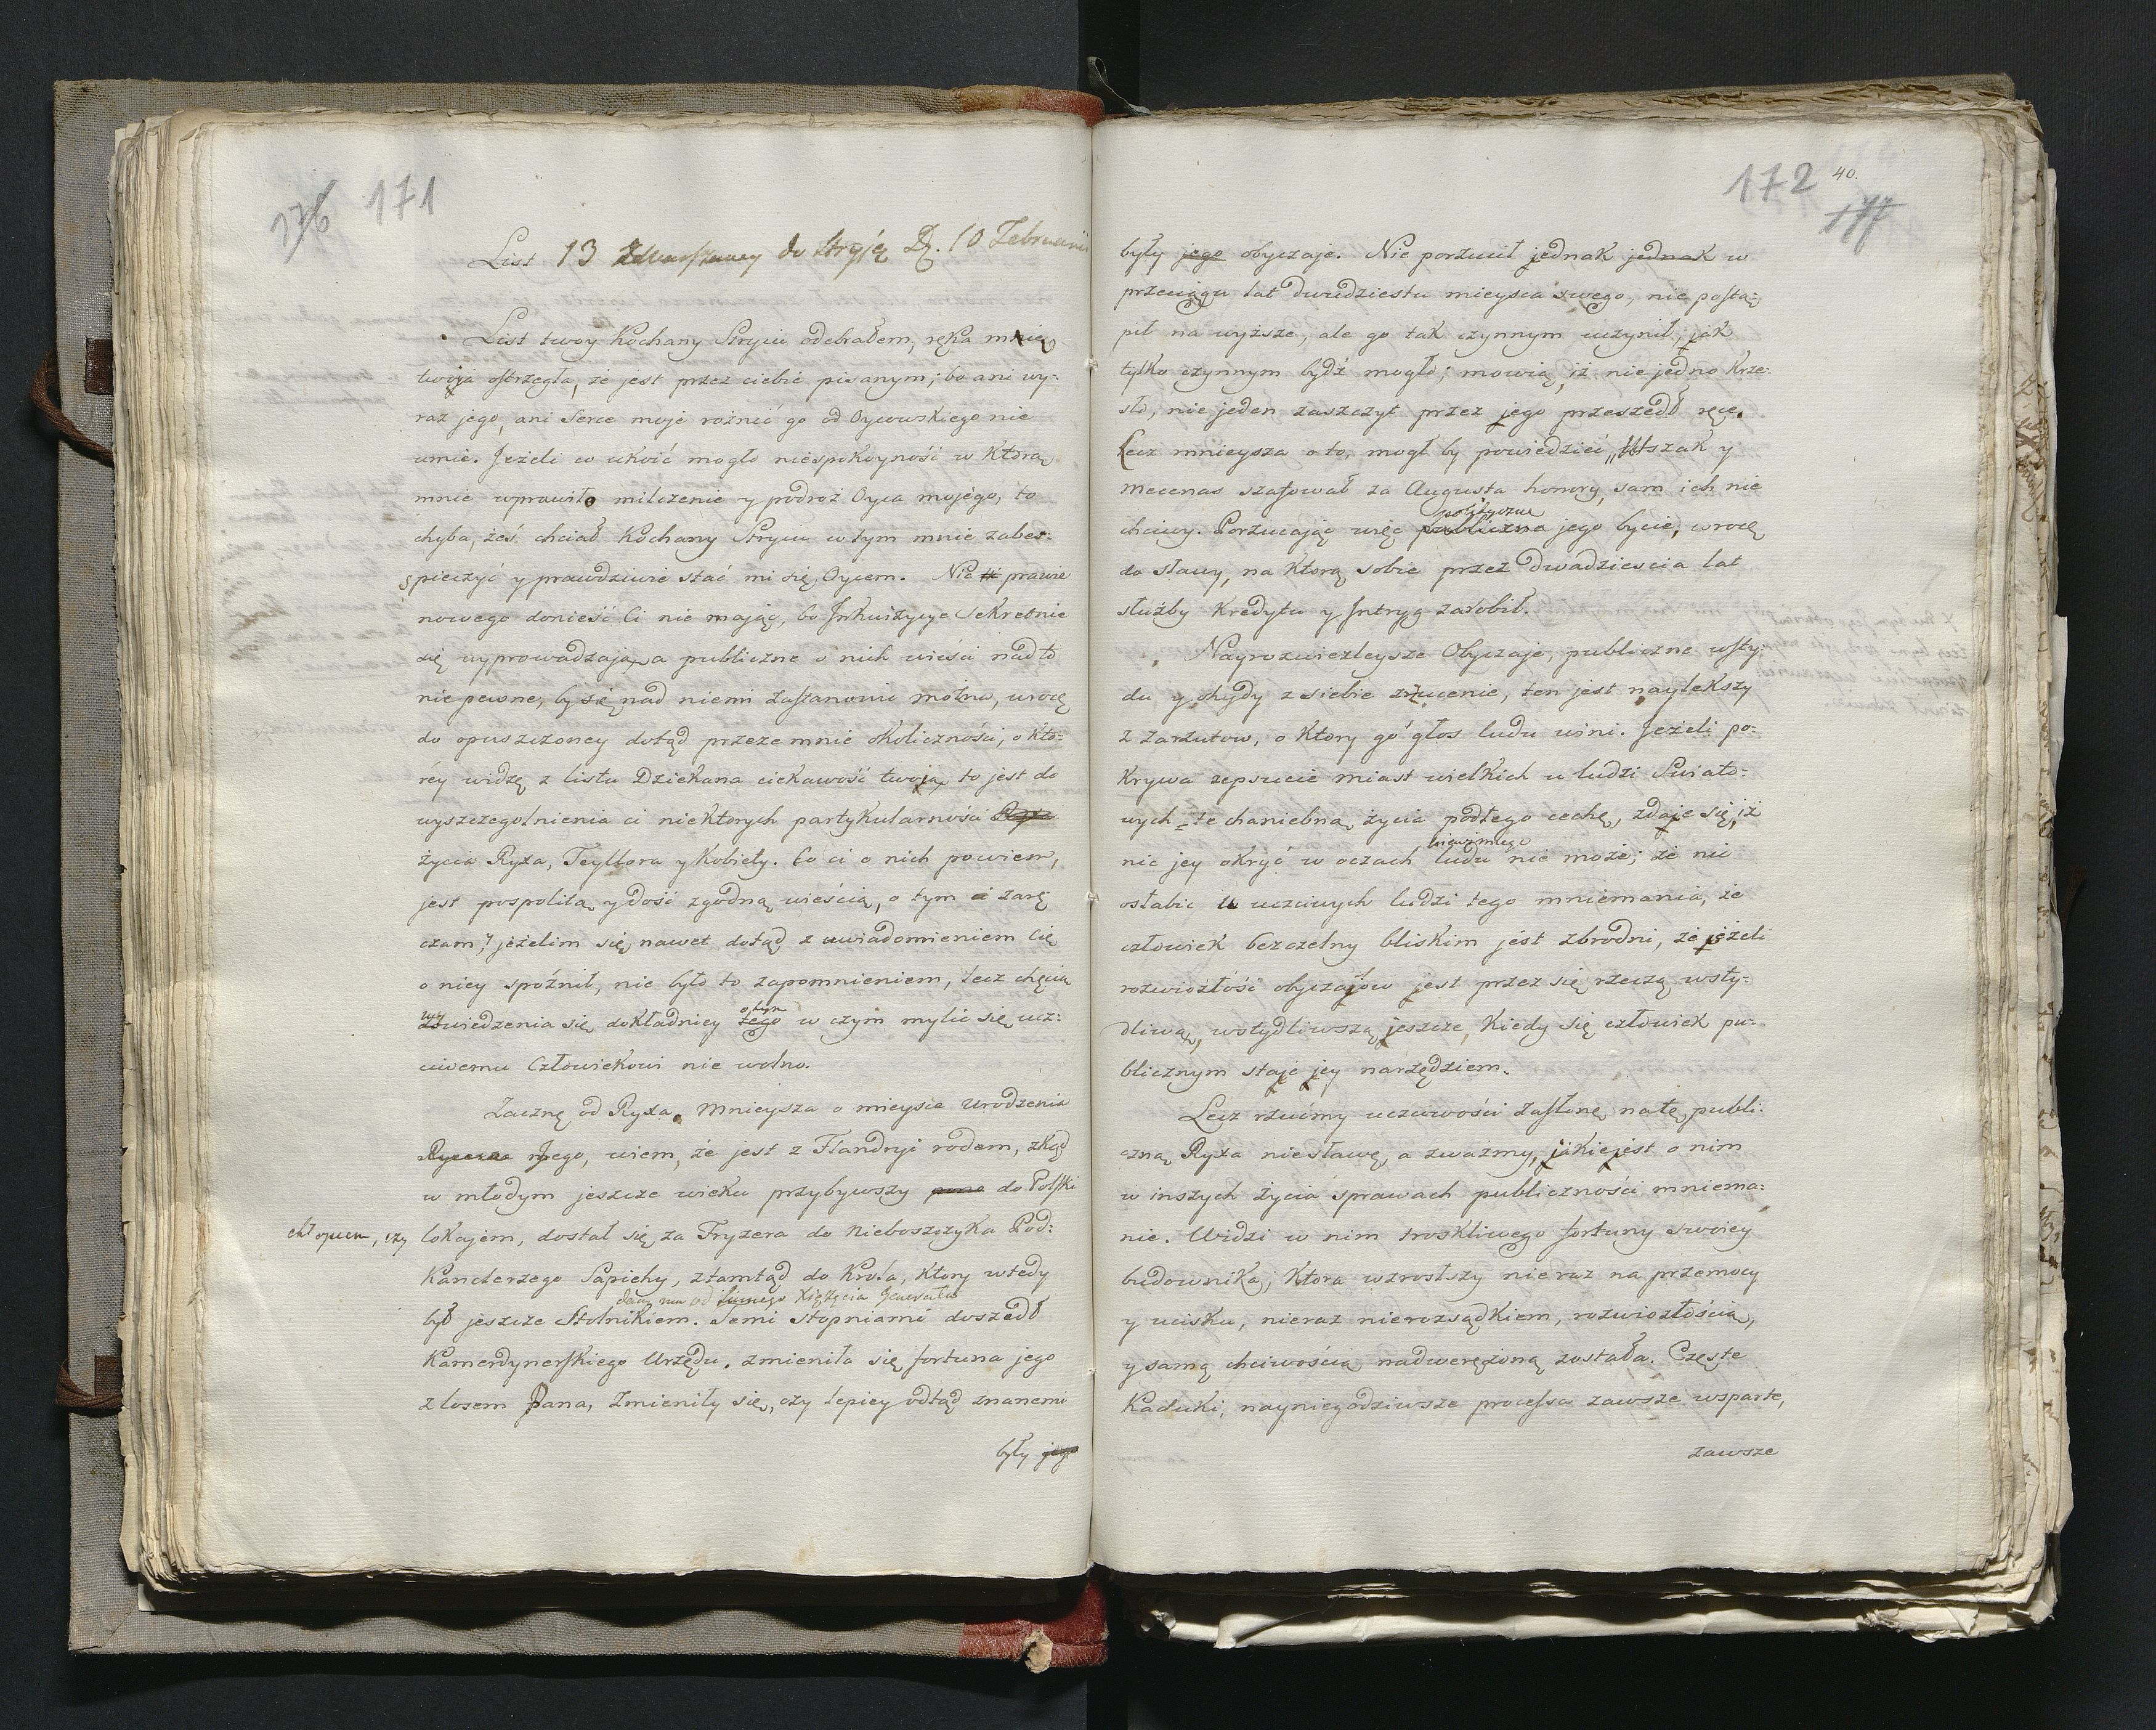 176 171
List 13 z Warszawy do Stryja D. 10 Februarii
List twoy Kochany Stryiu odebrałem, ręka mnie
twoja ostrzegła, że jest przez ciebie pisanym; bo ani wy-
raz jego, ani Serce moje rożnić go od Oycowskiego nie
umie. Jeżeli co ukoić mogło niespokoyność w Którą
mnie wprawiło milczenie y podroż Oyca mojego, to
chyba, żeś chciał Kochany Stryiu w tym mnie zabes-
pieczyć y prawdziwie stać mi się Oycem. Nic prawie
nowego donieść Ci nie mając, bo Inkwizycye Sekretnie
się wyprowadzają, a publiczne o nich wieści nadto
nie pewne, by się nad niemi zastanowić można, wrocę
do opuszczoney dotąd przeze mnie okoliczności, o kto-
rey widzę z listu Dziekana ciekawość twoją, to jest do
wyszczegolnienia ci niektorych partykularności Ryxa
życia Ryxa, Teyllora y Kobiety. Co ci o nich powiem,
jest pospolitą y dość zgodną wieścią, o tym ci zarę
czam, y jeżelim się nawet dotąd z uwiadomieniem Cię
o niey spóźnił, nie było to zapomnieniem, lecz chęcią
wywiedzenia się dokładniey tego o tym w czym mylić się ucz-
ciwemu Człowiekowi nie wolno.
Zacznę od Ryxa. Mnieysza o mieysce Urodzenia
Jego, wiem, że jest z Flandryi rodem, zkąd
w młodym jeszcze wieku przybywszy do Polski
chłopcem, czy lokajem, dostał się za Fryzera do Nieboszczyka Pod-
Kanclerzego Sapiehy, ztamtąd do Krola, Ktory wtedy
dany mu od Xiążęcia Generała
był jeszcze Stolnikiem. Temi stopniami doszedł
Kamerdynerskiego Urzędu. Zmieniła się fortuna jego
z losem Pana, Zmieniły się, czy lepiey odtąd znanemi
były jego
172 40.
177
były jego obyczaje. Nie porzucił jednak jednak w
przeciągu lat dwudziestu mieysca swego, nie postą-
pił na wyższe, ale go tak czynnym uczynił, jak
tylko czynnym bydź mogło; mowią, iż nie jedno Krze-
sło, nie jeden zaszczyt przez jego przeszedł ręce.
Lecz mnieysza o to, mogł by powiedzieć „Wszak y
Mecenas szafował za Augusta honory, sam ich nie
polityczne
chciwy. Porzucając więc publiczna jego bycie, wrocę
do sławy, na Ktorą sobie przez dwadzieścia lat
służby Kredytu y Intryg zarobił.
Nayrozwiezleysze Obyczaje, publiczne wsty-
du y ohydy z siebie zrzucenie, ten jest naylekszy
z zarzutow, o Ktory go głos ludu wini. Jeżeli po-
Krywa zepsucie miast wielkich u ludzi Swiato-
wych te chaniebną życia podłego cechę, zdaje się, iż
nic jey okryć w oczach ludu nie może; że nic
osłabić w uczciwych ludzi tego mniemania, że
człowiek bezczelny bliskim jest zbrodni, że jeżeli
rozwiozłość obyczajów jest przez się rzeczą wsty-
dliwą, wstydliwszą jeszcze, Kiedy się człowiek pu-
blicznym staje jey narzędziem.
Lecz rzućmy uczciwości zasłonę na tę publi-
czną Ryxa niesławę, a zważmy, jakie jest o nim
w inszych życia sprawach publiczności mniema-
nie. Widzi w nim troskliwego fortuny swoiey
budownika, Ktora wzrosłszy nieraz na przemocy
y ucisku, nieraz nierozsądkiem, rozwiozłością,
y samą chciwością nadwerężoną została. Częste
Kaduki, nayniegodziwsze processa zawsze wsparte,
zawsze